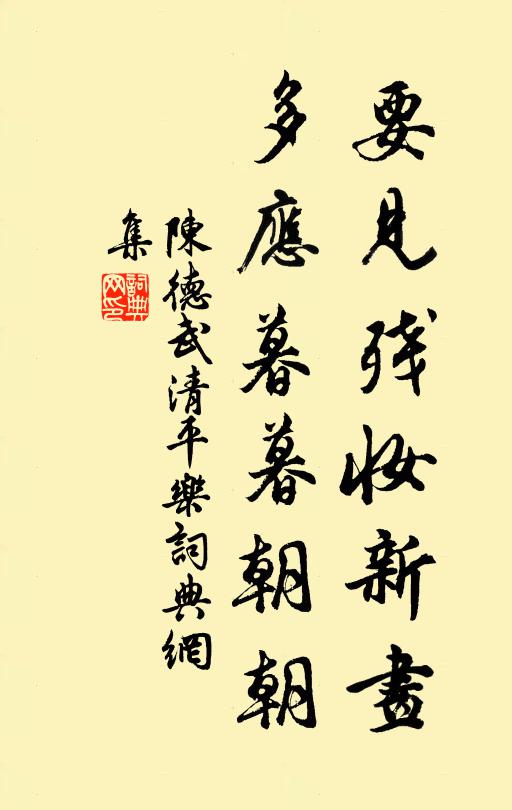 要見残妝新畫
多應暮暮朝朝
陳德武清平樂詞典網
集
詞典
网印